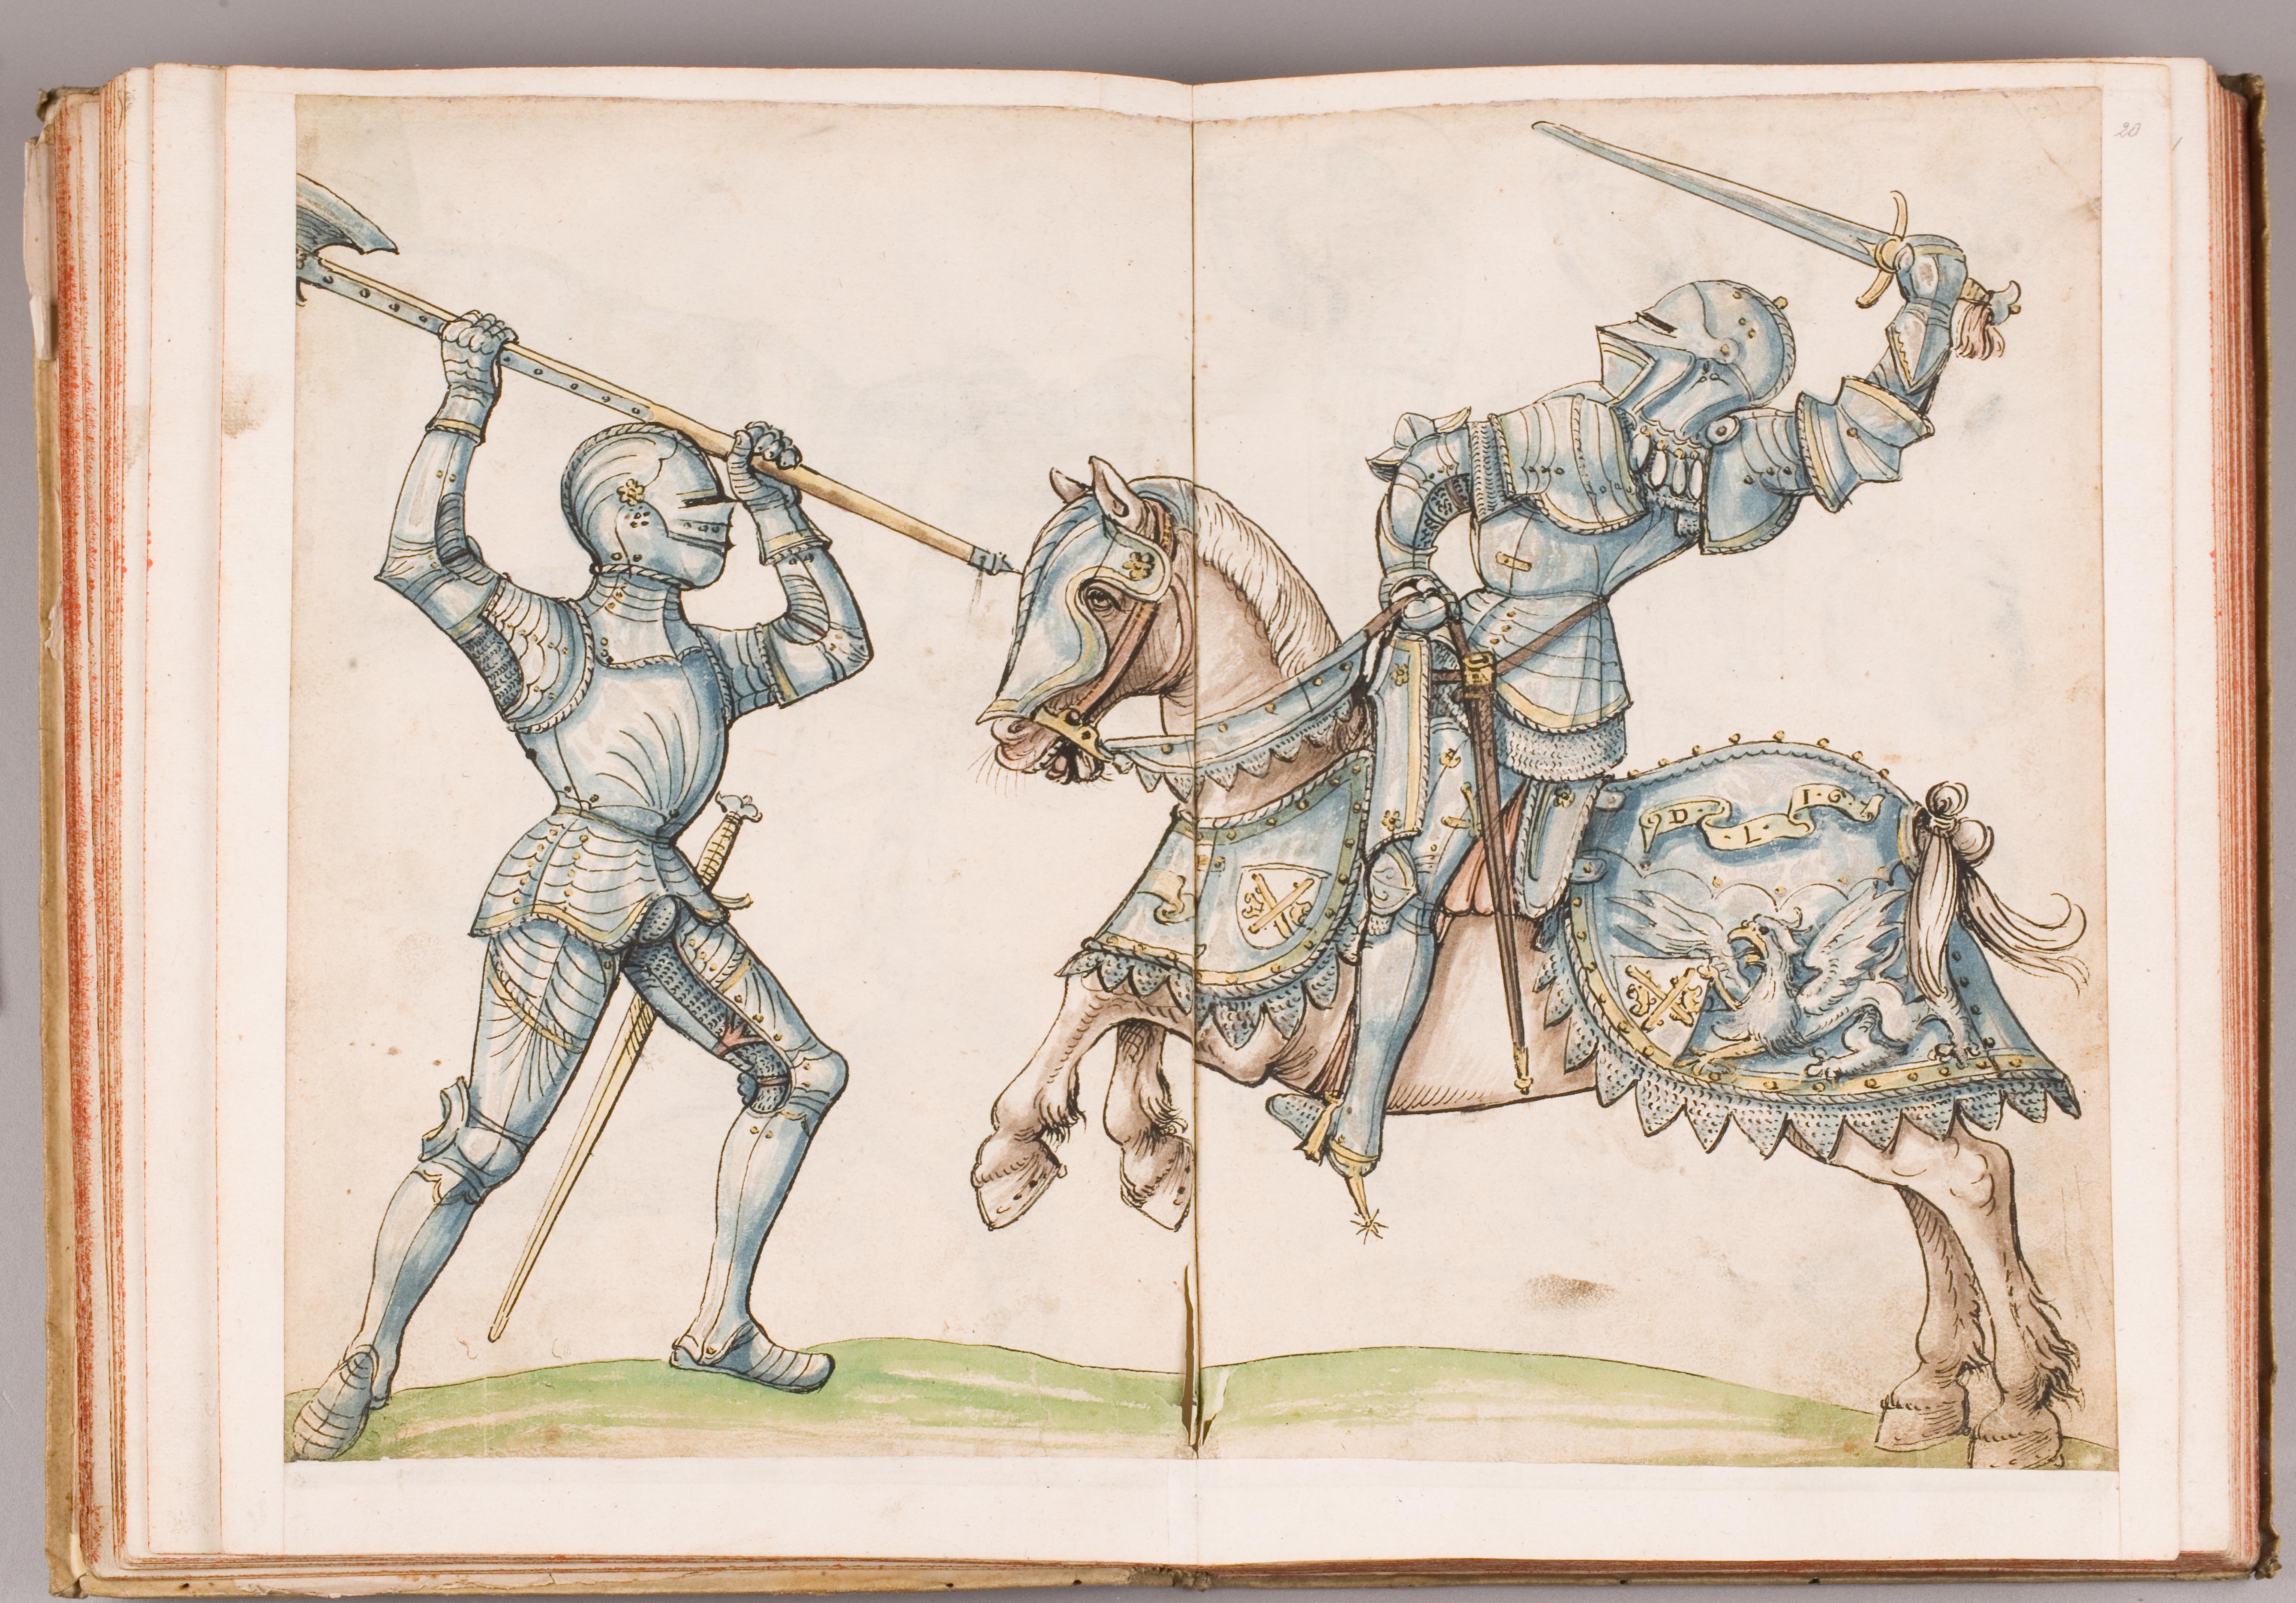 20
D · I · I · G ·